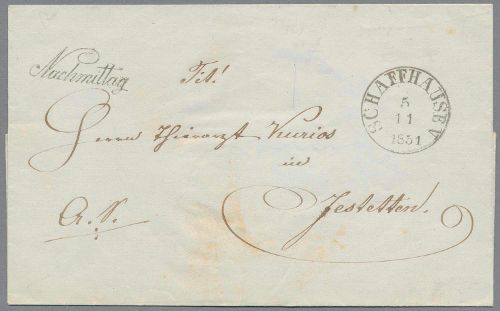 Nachmittag
Tit!
SCHAFFHAUSEN
5
11
1851
Herrn Thierarzt
in
Jestetten.
A. S.